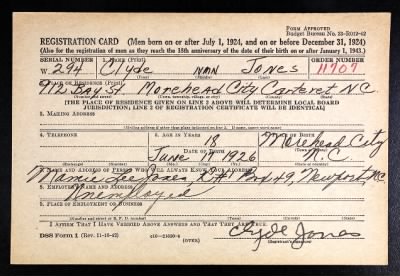 FORM APPROVED
Budget Bureau No. 33-R012-42
REGISTRATION CARD (Men born on or after July 1, 1924, and on or before December 31, 1924)
(Also for the registration of men as they reach the 18th anniversary of the date of their birth on or after January 1, 1943.)
SERIAL NUMBER 1. NAME (Print) ORDER NUMBER
W. 294 Clyde NMN Jones 11707
(First) (Middle) (Last)
2. PLACE OF RESIDENCE (Print)
912 Bay St. Morehead City Carteret N.C.
[THE PLACE OF RESIDENCE GIVEN ON LINE 2 ABOVE WILL DETERMINE LOCAL BOARD
JURISDICTION; LINE 2 OF REGISTRATION CERTIFICATE WILL BE IDENTICAL]
3. MAILING ADDRESS
4. TELEPHONE 5. AGE IN YEARS 6. PLACE OF BIRTH
18 Morehead City
DATE OF BIRTH
June 1926 N.C.
7. NAME AND ADDRESS OF PERSON WHO WILL ALWAYS KNOW YOUR ADDRESS
Mamie Lee Jones, Rt #1 Box 49, Newport, N.C.
8. EMPLOYER'S NAME AND ADDRESS
Unemployed
9. PLACE OF EMPLOYMENT OR BUSINESS
(Number and street or R. F. D. number) (Town) (County) (State)
I AFFIRM THAT I HAVE VERIFIED ABOVE ANSWERS AND THAT THEY ARE TRUE.
DSS Form 1 (Rev. 11-16-42) (OVER) Clyde Jones
(Registrant's signature)